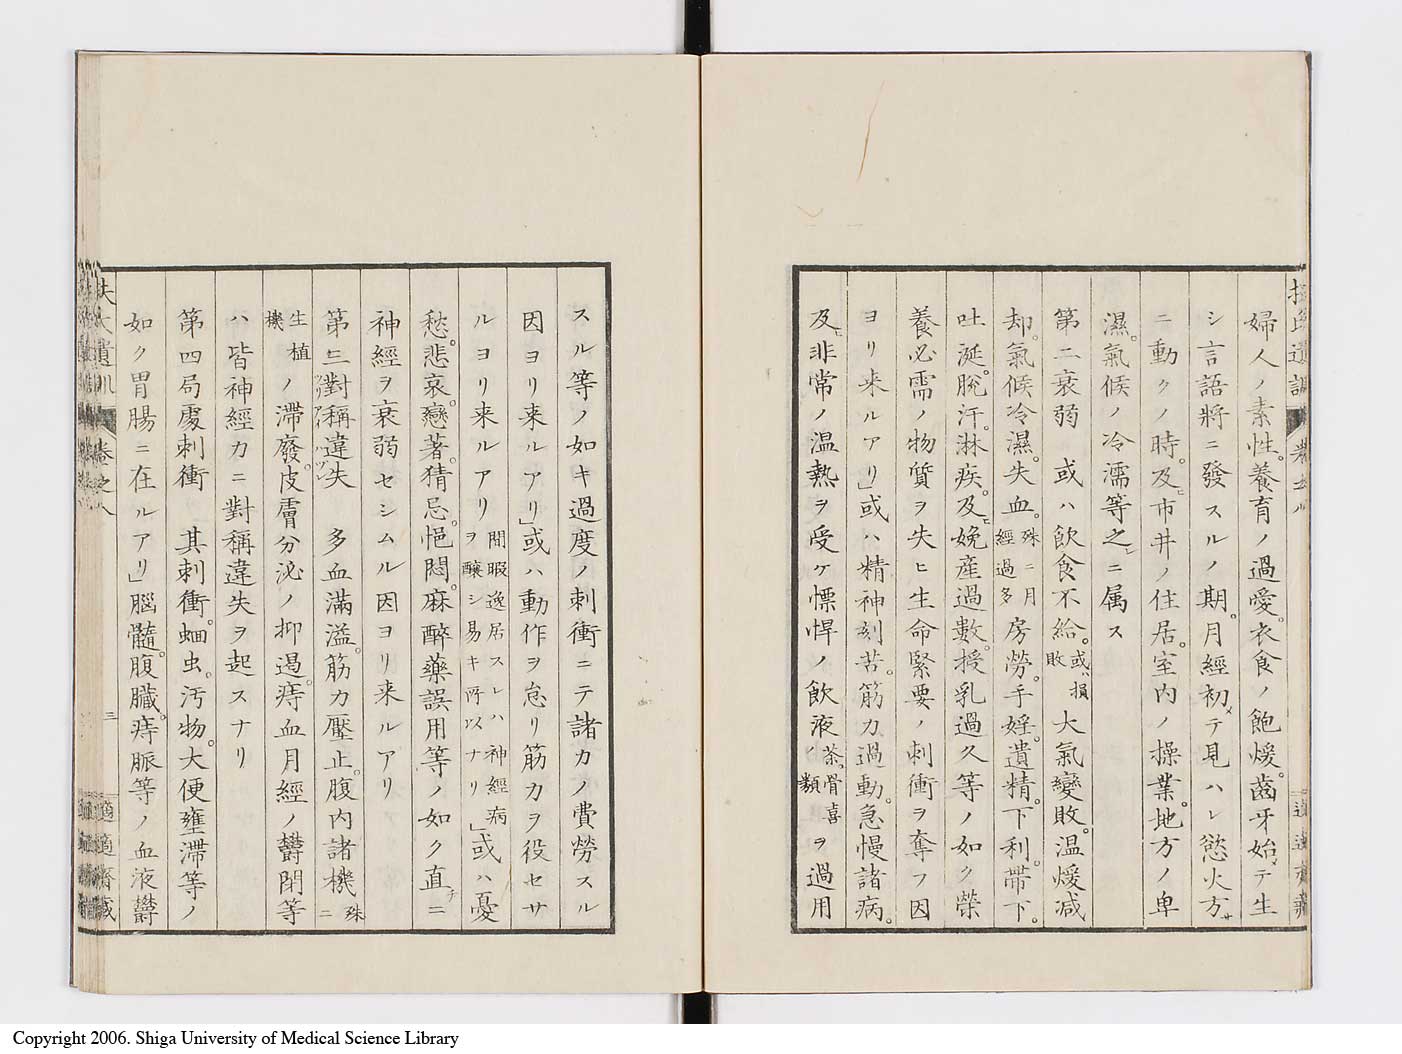 婦人ノ素性。養育ノ過愛。衣食ノ飽煖。齒牙始テ生
シ言語將ニ發スルノ期。月經初メテ見ハレ慾火方サ
ニ動クノ時。及ヒ市井ノ住居。室内ノ操業。地方ノ卑
濕。氣候ノ冷濡等之ニ属ス
第二衰弱 或ハ飲食不給。或ハ損敗 大氣變敗。温煖减
却。氣候冷濕。失血。殊ニ月經過多 房勞。手婬。遺精。下利。帶下。
吐涎。脱汗。淋疾。及ヒ娩産過數。授乳過久等ノ如ク榮
養必需ノ物質ヲ失ヒ生命緊要ノ刺衝ヲ奪フ因
ヨリ来ルアリ」或ハ精神刻苦。筋力過動。急慢諸病。
及ヒ非常ノ温熱ヲ受ケ慓悍ノ飲液茶、骨喜ノ類ヲ過用
スル等ノ如キ過度ノ刺衝ニテ諸力ノ費勞スル
因ヨリ来ルアリ」或ハ動作ヲ怠リ筋力ヲ役セサ
ルヨリ来ルアリ 間暇逸居スレハ神經病ヲ醸シ易キ所以ナリ」或ハ憂
愁。悲哀。戀著。猜忌。悒悶。麻醉藥誤用等ノ如ク直チニ
神經ヲ衰弱セシムル因ヨリ来ルアリ
第三對稱違失 多血滿溢。筋力壓止。腹内諸機 殊ニ
生植機ノ滞廢。皮膚分泌ノ抑遏。痔血月經ノ欝閉等
ハ皆神經力ニ對稱違失ヲ起スナリ
第四局處刺衝 其刺衝。蛔虫。汚物。大便壅滞等ノ
如ク胃腸ニ在ルアリ」腦髓。腹臓。痔脈等ノ血液欝
扶氏遺訓 卷之八
三
適適齋藏
Copyright 2006. Shiga University of Medical Science Library